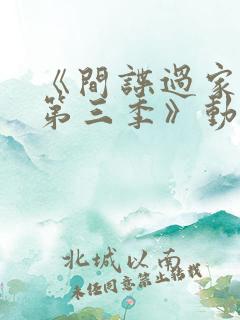 《間諜過家家
第三季》動
北城以南
未经同意禁止转载